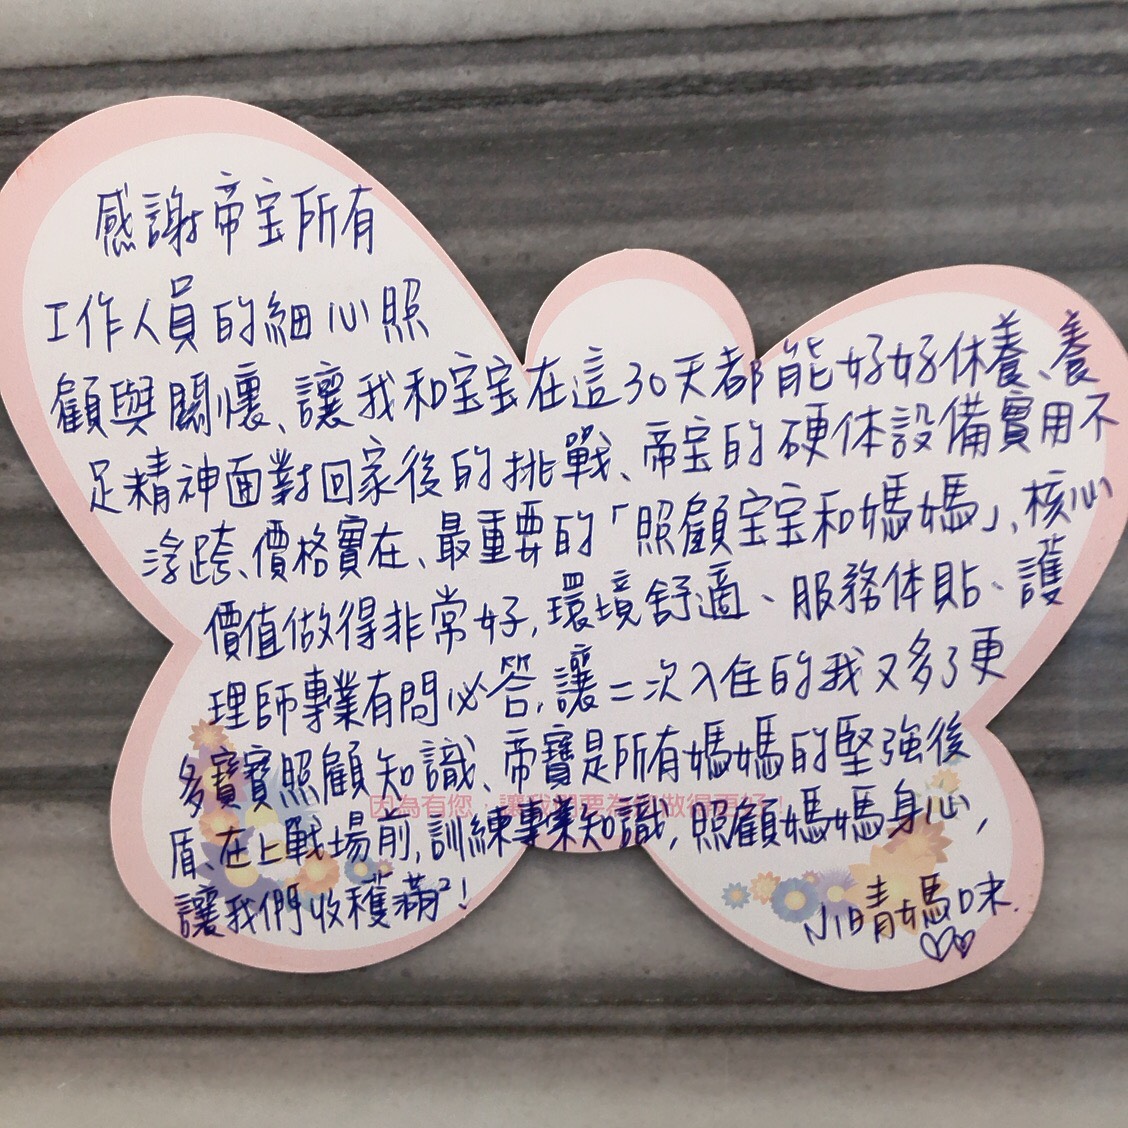 感謝帝宝所有
工作人員的細心照
顧與關懷、讓我和宝宝在這30天都能好好休養、養
足精神面對回家後的挑戰、帝宝的硬体設備實用不
浮跨、價格實在、最重要的「照顧宝宝和媽媽」、核心
價值做得非常好,環境舒適、服務体貼、護
理師專業有問必答,讓二次入住的我又多了更
多寶寶照顧知識、帝寶是所有媽媽的堅強後
因為有您，讓我們要為您做得更好！
盾、在上戰場前,訓練專業知識,照顧媽媽身心,
讓我們收穫滿²!
小晴媽咪.